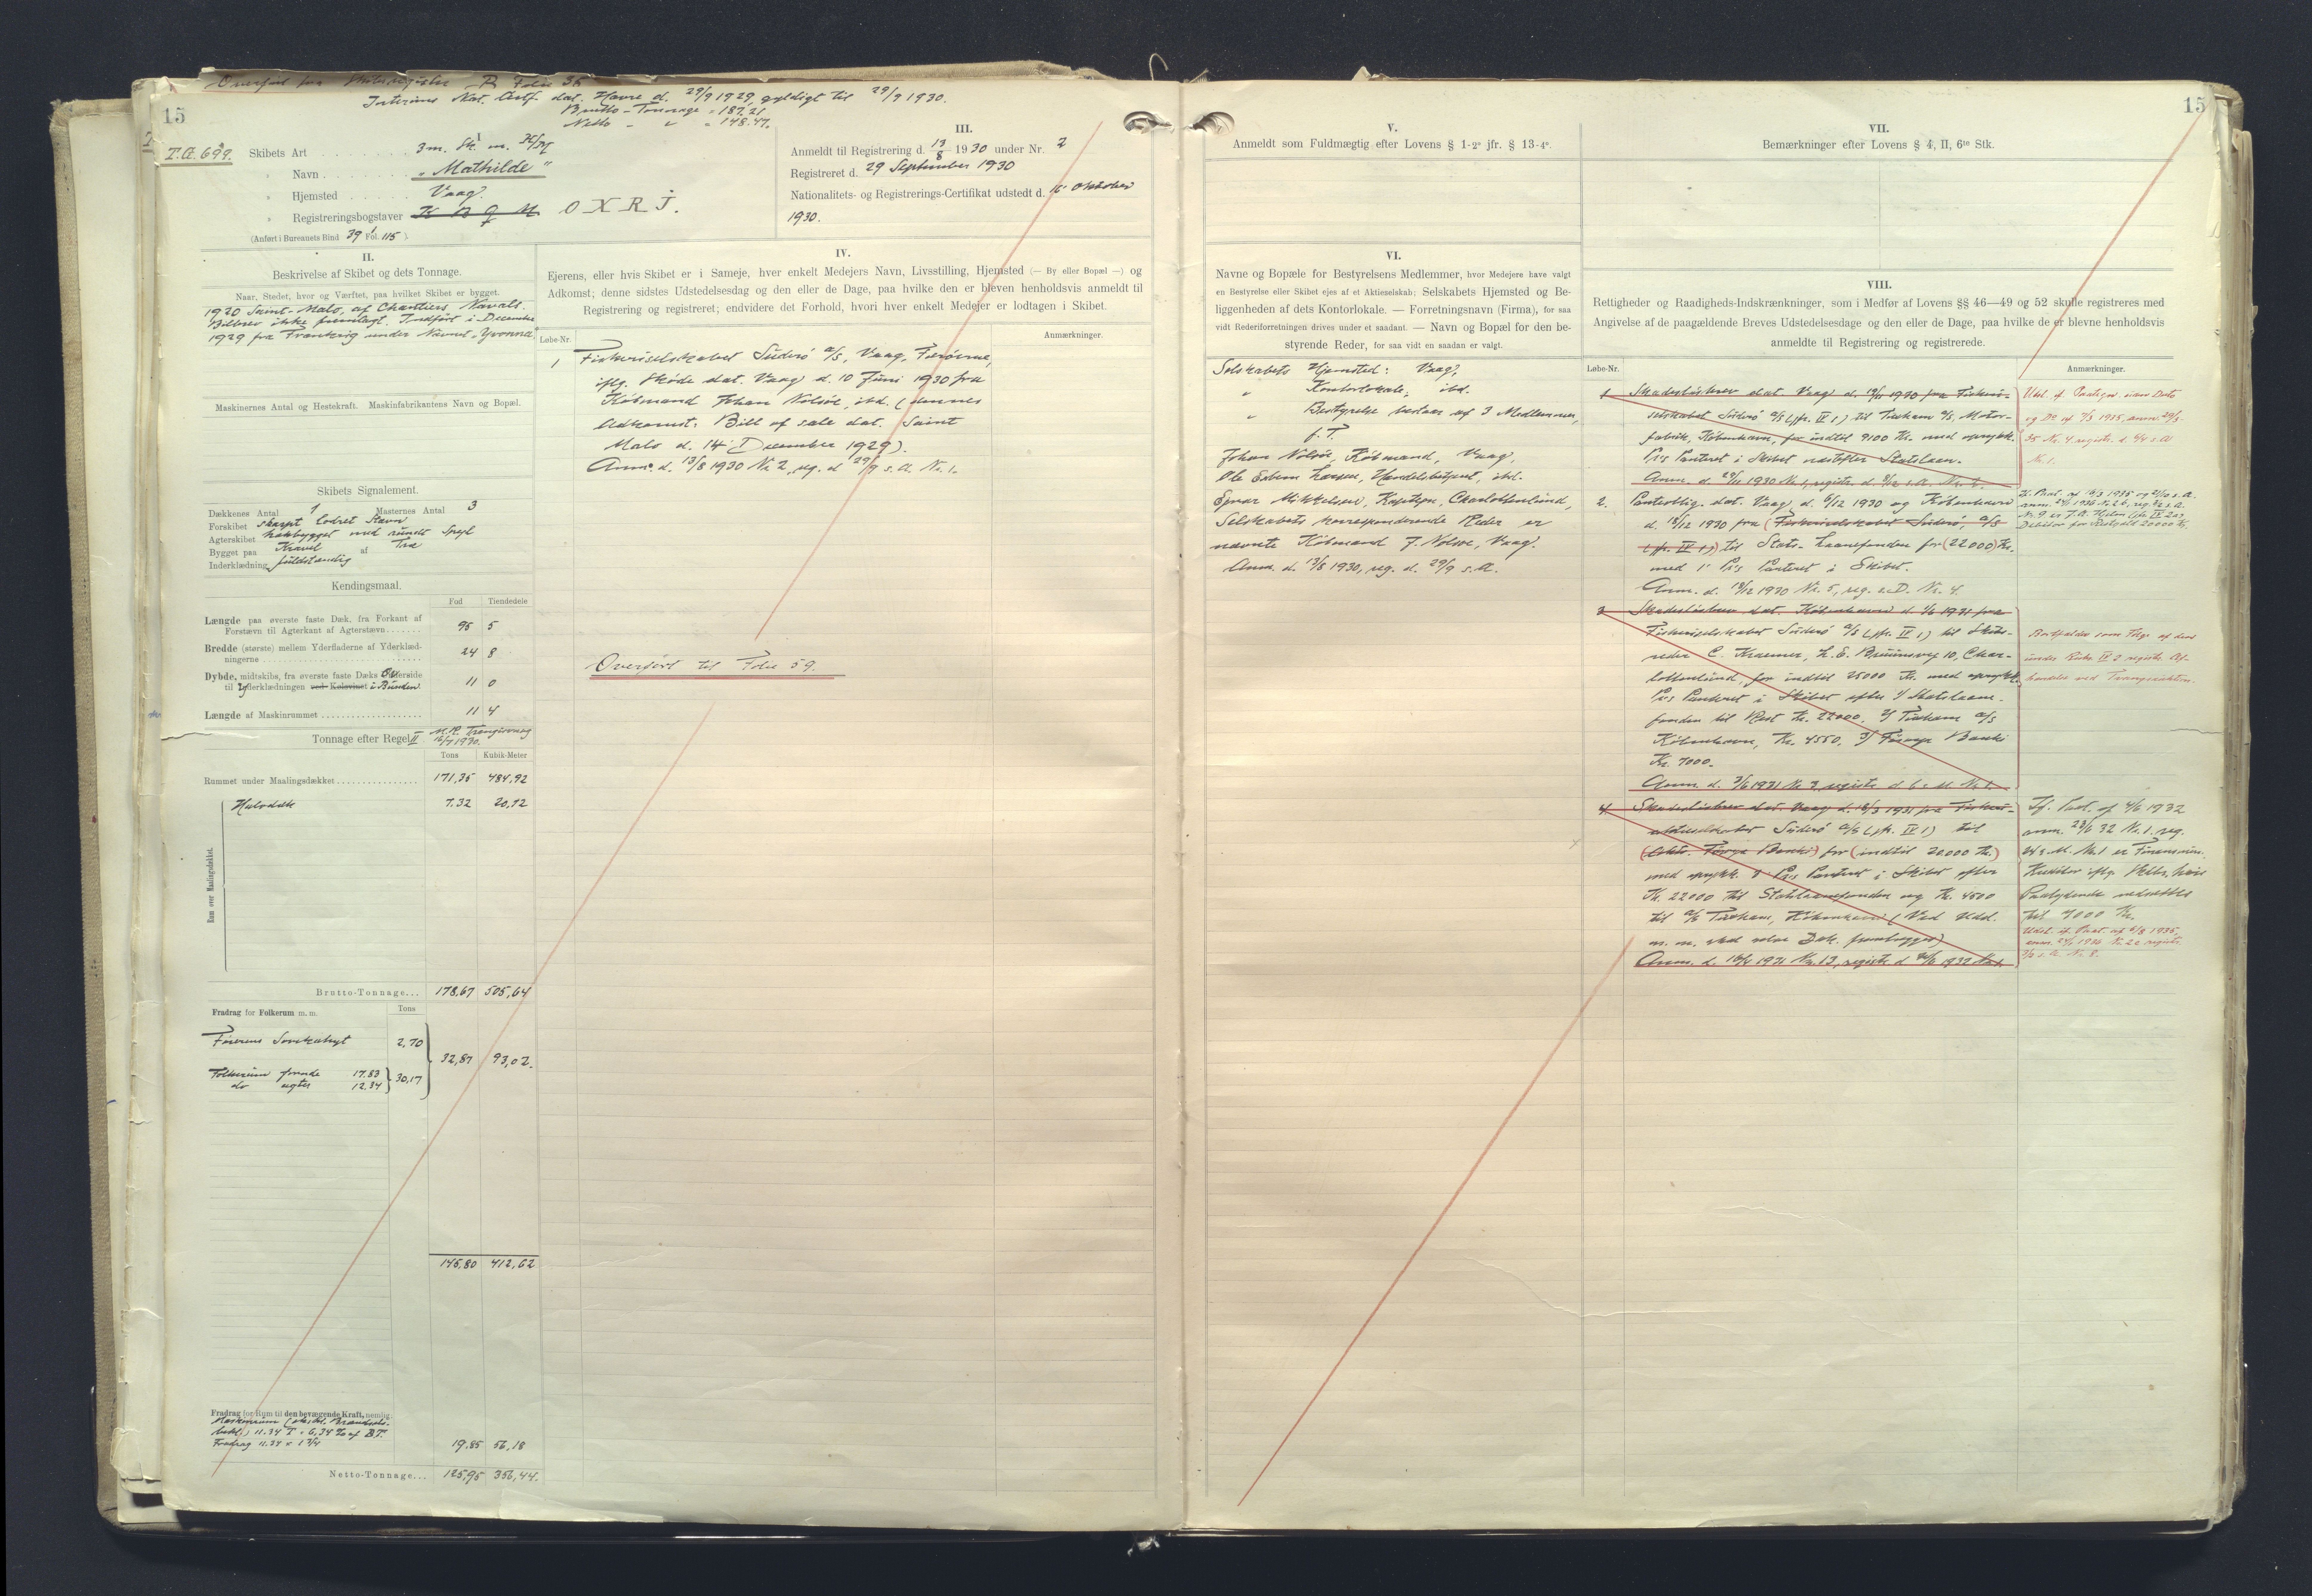 Overført fra Skibsregister B Folie 35
Interims Nat. Certf. dat. Havre d. 29/9 1929, gyldigt til 29/9 1930.
Brutto-Tonnage = 187.21
Netto - " = 148.47.
15
T.Œ. 699.
I
Skibets Art 3 m. Sk. m. Hj/M
" Navn "Mathilde"
" Hjemsted Vaag.
" Registreringsbogstaver OXRJ.
(Anført i Bureauets Bind 39 Fol. 115).
III.
Anmeldt til Registrering d. 13/8 1930 under Nr. 2
Registreret d. 29 September 1930
Nationalitets- og Registrerings-Certifikat udstedt d. 16 Oktober
1930.
II.
Beskrivelse af Skibet og dets Tonnage.
Naar, Stedet, hvor og Værftet, paa hvilket Skibet er bygget.
1920 Saint-Malo, af Chantiers Navals.
Bilbrev ikke fremlagt. Indført i December
1929 fra Frankrig under Navnet "Yvonne".
Maskinernes Antal og Hestekraft. Maskinfabrikantens Navn og Bopæl.
Skibets Signalement.
Dækkenes Antal 1 Masternes Antal 3
Forskibet skarpt lodret Stavn
Agterskibet hækbygget med rundt Spejl
Bygget paa Kravel af Træ
Inderklædning fuldstændig
Kendingsmaal.
Fod Tiendedele
Længde paa øverste faste Dæk, fra Forkant af
Forstævn til Agterkant af Agterstævn 95 5
Bredde (største) mellem Yderfladerne af Yderklæd-
ningerne 24 8
Dybde, midtskibs, fra øverste faste Dæks Overside
til Yderklædningen ved Kølsvinet i Bunden 11 0
Længde af Maskinrummet 11 4
Tonnage efter Regel II M.R. Trangisvaag
16/7 1930.
Tons Kubik-Meter
Rummet under Maalingsdækket 171,35 484,92
Halvdæk 7.32 20,72
Rum over Maalingsdækket.
Brutto-Tonnage... 178,67 505,64
Fradrag for Folkerum m. m. Tons
Førerens Sovekahyt 2,70
32,87 93,02.
Folkerum forude 17.83
do agter 12.34 } 30,17
145,80 412,62
Fradrag for Rum til den bevægende Kraft, nemlig:
Fradrag 11.34 × 1 3/4 19,85 56,18
Netto-Tonnage... 125,95 356,44.
IV.
Ejerens, eller hvis Skibet er i Sameje, hver enkelt Medejers Navn, Livsstilling, Hjemsted (— By eller Bopæl —) og
Adkomst; denne sidstes Udstedelsesdag og den eller de Dage, paa hvilke den er bleven henholdsvis anmeldt til
Registrering og registreret; endvidere det Forhold, hvori hver enkelt Medejer er lodtagen i Skibet.
Løbe-Nr. Anmærkninger.
1 Fiskeriselskabet Suderø A/S, Vaag, Færøerne,
iflg. Skøde dat. Vaag d. 10 Juni 1930 fra
Købmand Johan Nolsøe, ibd. (dennes
Adkomst: Bill of sale dat. Saint
Malo d. 14 December 1929).
Anm. d. 13/8 1930 Nr. 2, reg. d 29/9 s. A. Nr. 1.
Overført til Folie 59.
15
V.
Anmeldt som Fuldmægtig efter Lovens § 1-2° jfr. § 13-4°.
VI.
Navne og Bopæle for Bestyrelsens Medlemmer, hvor Medejere have valgt
en Bestyrelse eller Skibet ejes af et Aktieselskab; Selskabets Hjemsted og Be-
liggenheden af dets Kontorlokale. — Forretningsnavn (Firma), for saa
vidt Rederiforretningen drives under et saadant. — Navn og Bopæl for den be-
styrende Reder, for saa vidt en saadan er valgt.
Selskabets Hjemsted: Vaag,
" Kontorlokale, ibd.
" Bestyrelse bestaar af 3 Medlemmer,
f. T.
Johan Nolsøe, Købmand, Vaag,
Ole Esbern Larsen, Handelsbetjent, ibd.
Ejnar Mikkelsen, Kaptajn, Charlottenlund,
Selskabets korresponderende Reder er
nævnte Købmand J. Nolsøe, Vaag.
Anm. d. 13/8 1930, reg. d. 29/9 s. A.
VII.
Bemærkninger efter Lovens § 4, II, 6te Stk.
VIII.
Rettigheder og Raadigheds-Indskrænkninger, som i Medfør af Lovens §§ 46—49 og 52 skulle registreres med
Angivelse af de paagældende Breves Udstedelsesdage og den eller de Dage, paa hvilke de er blevne henholdsvis
anmeldte til Registrering og registrerede.
Løbe-Nr. Anmærkninger.
1 Skadesløsbrev dat. Vaag d. 19/11 1930 fra Fiskeri-
selskabet Suderø A/S (jfr. IV 1) til Tuxham A/S, Motor-
fabrik, København, for indtil 9100 Kr. med oprykk.
Pr's Panteret i Skibet næstefter Statslaan.
Anm. d. 29/11 1930 Nr. 1, registr. d.
2. Panteoblig. dat. Vaag d. 6/12 1930 og København
d. 18/12 1930 fra (Fiskeriselskabet Suderø, A/S
(jfr. IV 1)) til Stats-Laanefonden for (22000) Kr.
med 1' Pr's Panteret i Skibet.
Anm. d. 18/12 1930 Nr. 5, reg. s. D. Nr. 4.
3 Skadesløsbrev dat. København d. 1/6 1931 fra
Fiskeriselskabet Suderø A/S (jfr. IV 1) til Skibs-
reder C. Kraemer, L. E. Bruunsvej 10, Char-
lottenlund, for indtil 25000 Kr. med oprykk.
Pr's Panteret i Skibet efter 1/ Statslaane-
fonden til Rest Kr. 22000, 2/ Tuxham A/S
København, Kr. 4550, 3/ Føroya Banki
Kr. 7000.
Anm. d. 3/6 1931 Nr 3, registr. d.
4 Skadesløsbrev dat. Vaag d. 18/3 1931 fra Fiskeri-
aktieselskabet Suderø A/S (jfr. IV 1) til
Føroya Banki) for (indtil 20.000 Kr.)
med oprykk. Pr's Panteret i Skibet efter
Kr. 22000 til Statslaanefonden og Kr. 4500
til A/S Tuxham, København (Ved Udd.
m. m. skal selve Dok. fremlægges)
Anm. d. 1931 Nr. 13, registr. d 1932 Nr. 1.
Bortfaldet som Flg. af den
under Rubr. IV 2 registr. Af-
hændelse ved Tvangsauktion.
Tf. Paat. af 4/6 1932
anm. 23/6 32 Nr. 1. reg.
Kreditor iflg.
Paalydende nedsættes
til 7000 Kr.